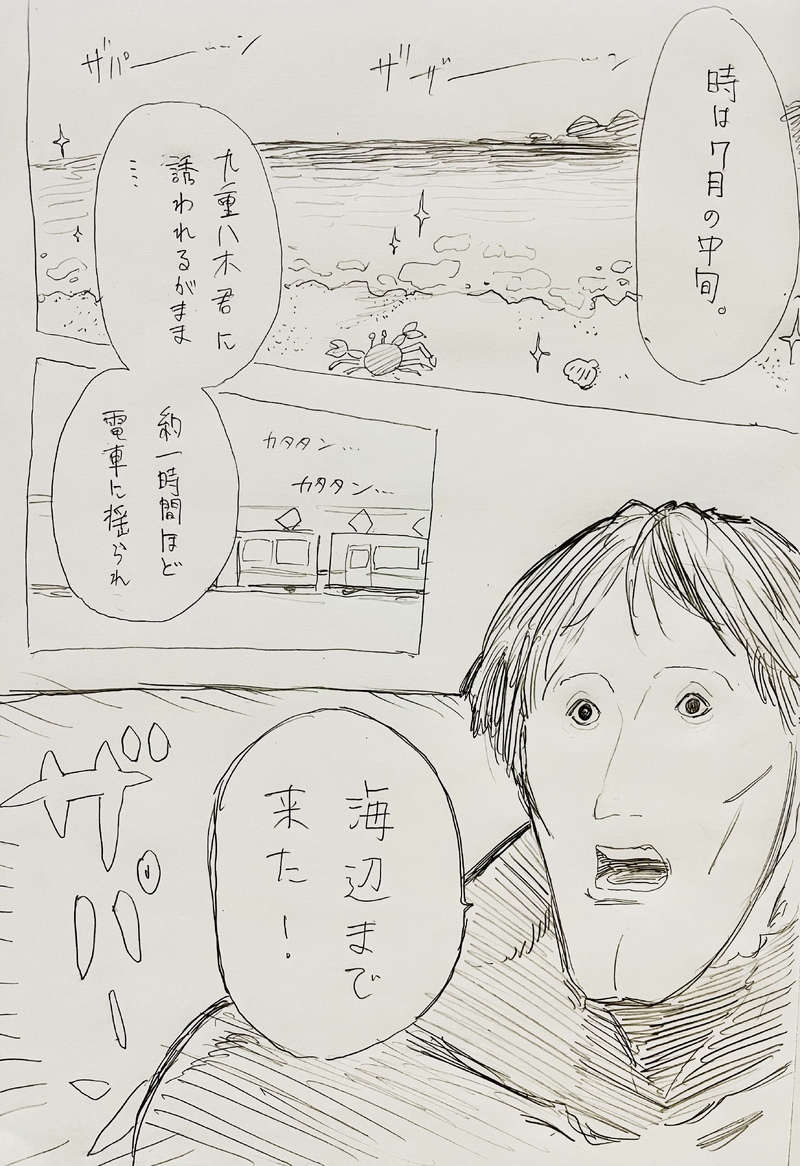 時は7月の中旬。
ザザーー……ン
ザパーー……ン
九重八木君に
誘われるがまま
……
カタタン…
カタタン…
約一時間ほど
電車に揺られ
海辺まで
来た！
ザパーン